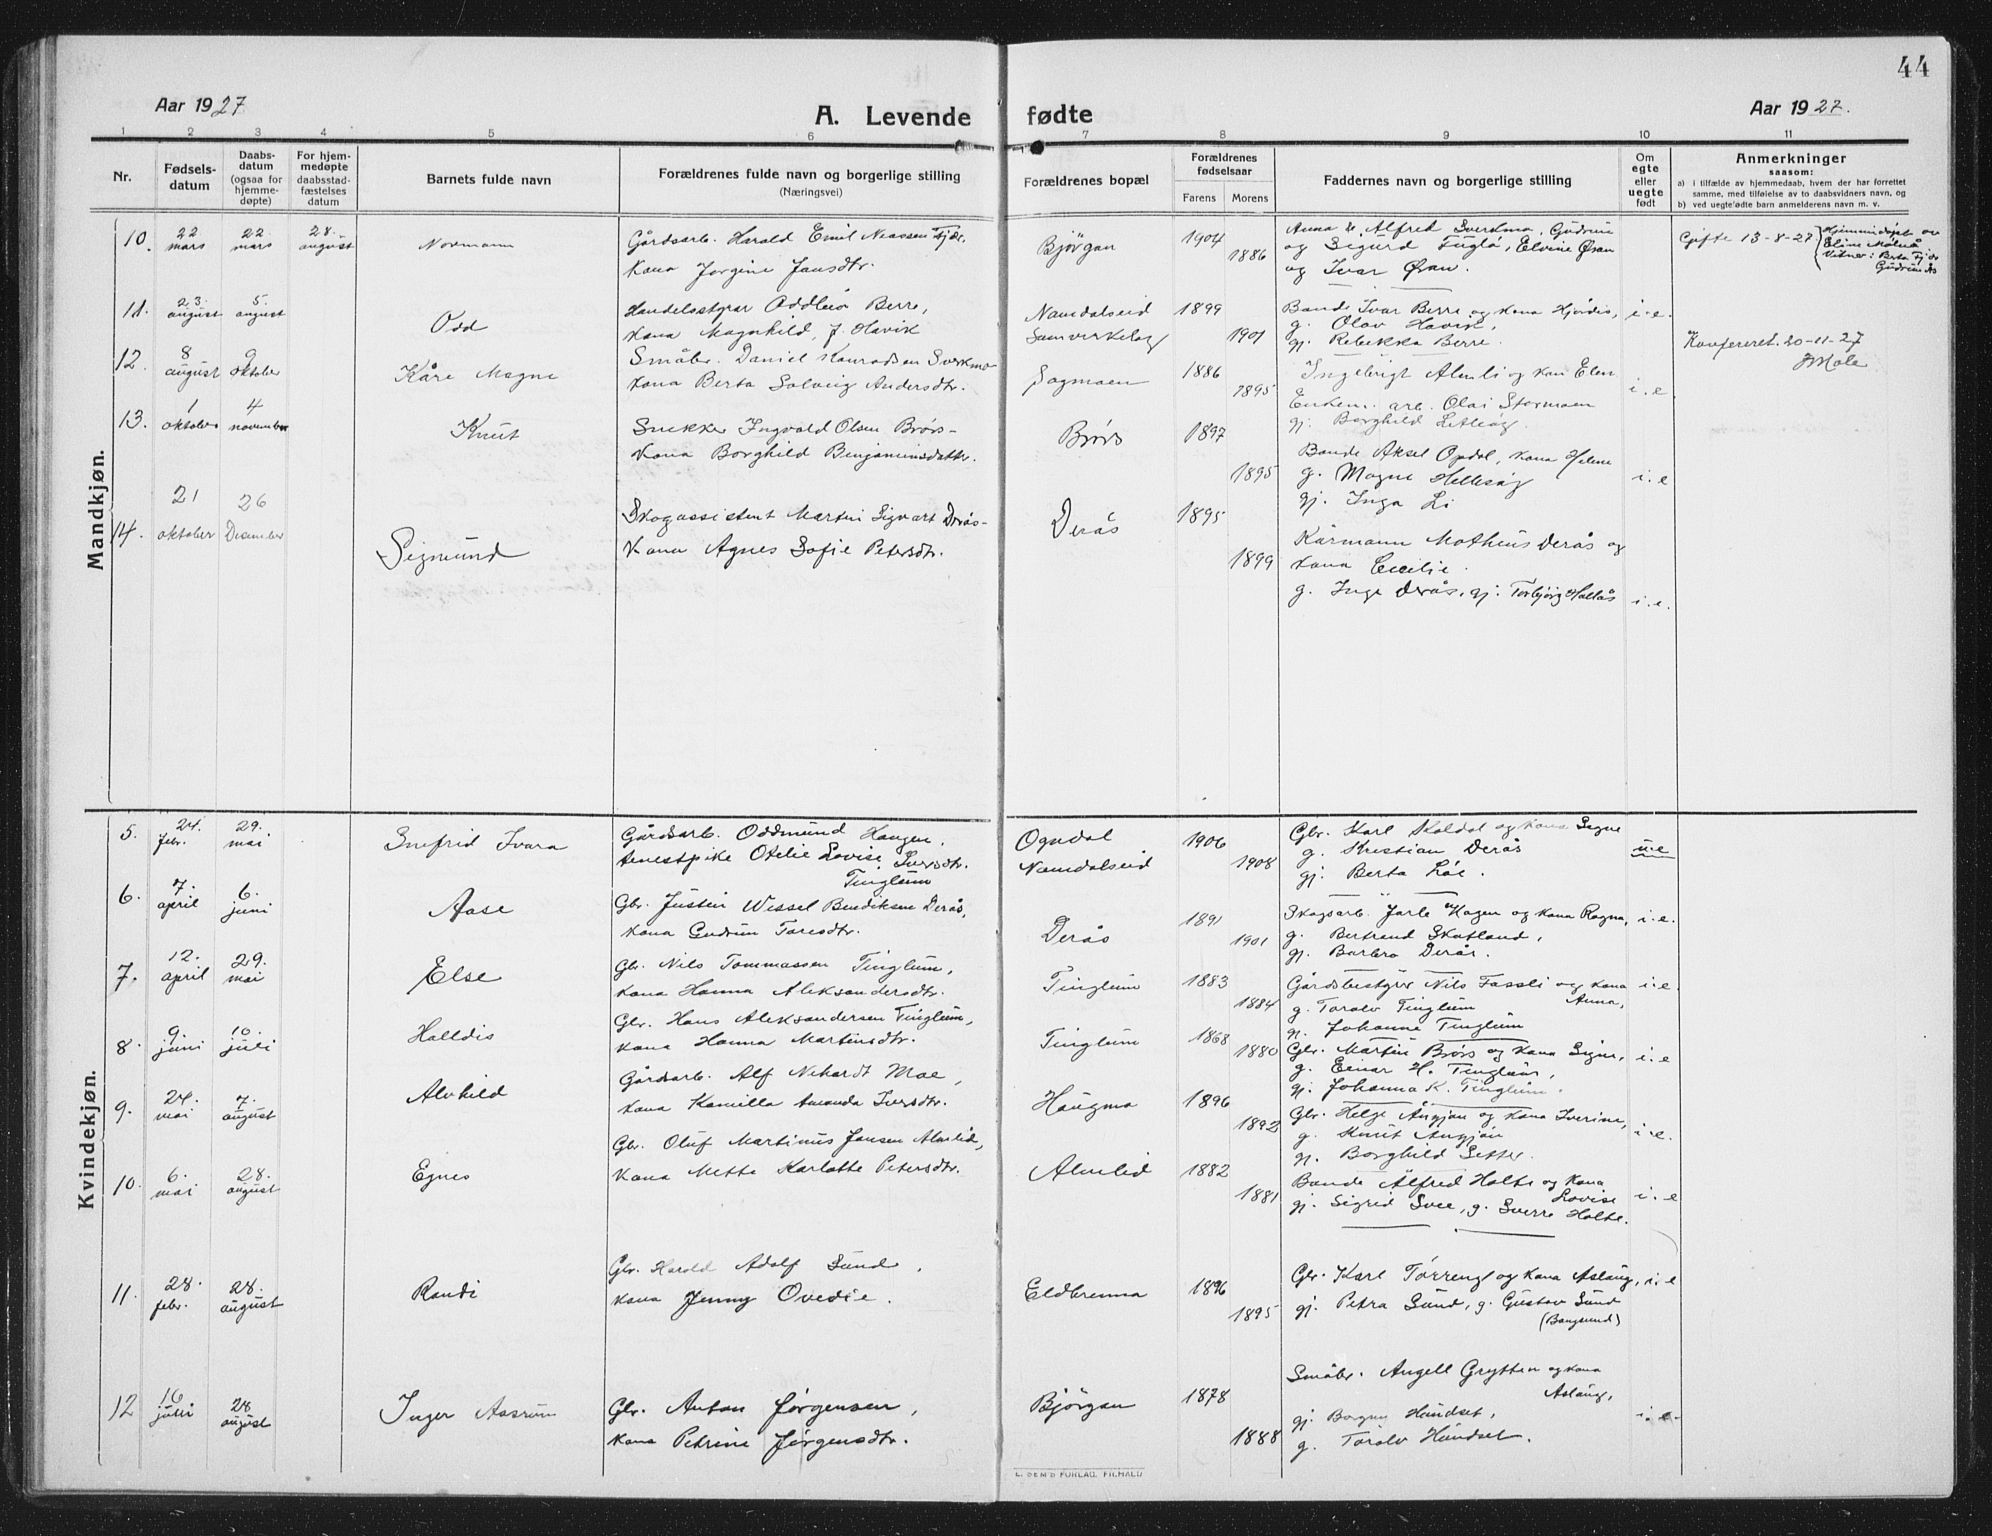 44
Aar 1927
A. Levende fødte
Aar 1927.
1 2 3 4 5 6 7 8 9 10 11
Nr.
Fødsels-
datum
Daabs-
datum
(ogsaa for
hjemme-
døpte)
For hjem-
medøpte
daabsstad-
fæstelses
datum
Barnets fulde navn
Forældrenes fulde navn og borgerlige stilling
(Næringsvei)
Forældrenes bopæl
Forældrenes
fødselsaar
Farens Morens
Faddernes navn og borgerlige stilling
Om
egte
eller
uegte
født
Anmerkninger
saasom:
a) i tilfælde av hjemmedaab, hvem der har forrettet
samme, med tilføielse av to daabsvidners navn, og
b) ved uegte fødte barn anmelderens navn m. v.
Mandkjøn.
10. 22 mars 22 mars 28. august Normann
Gårdsarb. Harald Emil
Kona Jorgine Jansdtr.
Bjørgan 1904 1886
Anna &, Alfred Sverkmo, Gudrun
og Sigurd Fuglå, Elvine Øran
og Ivar Øran.
Gifte 13-8-27
Eline
Vitner: Berta
11. 23. august 5. august Odd
Handelsstyrar Oddleiv Berre,
kona Magnhild, f. Havik
Namdalseid
Samvirkelag
1899 1901
Bonde Ivar Berre og kona Hjørdis,
g. Olav Havik,
gj. Rebekka Berre.
i.e.
Konfereret. 20-11-27
12. 8 august 9 oktober Kåre Magne
Småbr. Daniel Konradsen Sverkmo
kona Berta Solveig Andersdtr.
Sagmoen 1886 1895
Ingebrigt Almli og kona Elen
arb. Olai Stormoen
gj. Borghild
i.e
13. 1 oktober 4 november Knut
Snekker Ingvald Olsen Brørs-
Kona Borghild Benjaminsdatter.
Brørs 1897 1895
Bonde Aksel Opdal, kona Helene
g. Magne
gj. Inga Li
i.e
14. 21 oktober 26 Desember Sigmund
Skogassistent Martin Sigvart Derås-
Kona Agnes Sofie Petersdtr.
Derås 1895 1899
Kårmann Matheus Derås og
kona Cecilie.
g. Inge Derås, gj: Torbjørg Hallås
i.e.
Kvindekjøn.
5. 24. febr. 29. mai Snefrid Ivara
Gårdsarb. Oddmund Haugen,
tenestpike Otelie Lovise Iversdtr.
Tinglum
Ogndal
Namdalseid
1906 1908
Gbr. Karl Kaldal og kona Signe
g. Kristian Derås
gj. Berta
u.e
6. 7. april 6. juni Aase
Gbr. Justin Wessel Bendiksen Derås,
kona Gudrun Toresdtr.
Derås 1891 1901
Skogsarb. Jarle Hagen og kona Ragna,
g. Bertrand Skatland,
gj. Barbro Derås.
i.e.
7. 12. april 29. mai Else
Gbr. Nils Tommassen Tinglum,
kona Hanna Aleksandersdtr.
Tinglum 1883 1884
Gårdsbestyrer Nils Fassli og kona
Anna,
g. Torolv Tinglum
gj. Johanne Tinglum
i.e.
8. 9. juni 10. juli Halldis
Gbr. Hans Aleksandersen Tinglum,
kona Hanna Martinsdtr.
Tinglum 1868 1880
Gbr. Martin Brørs og kona Signe,
g. Einar H. Tinglum,
gj. Johanna K. Tinglum.
i.e
9. 24. mai 7. august Alvhild
Gårdsarb. Alf Nikardt Moe,
kona Kamilla Amanda Iversdtr.
Haugmo 1896 1892
Gbr. Helge Angjon og kona Iverine,
g. Knut Angjon
gj. Borghild Setter.
i.e.
10. 6. mai 28. august Egnes
Gbr. Oluf Martinus Jansen Almlid,
Kona Mette Karlotte Petersdtr.
Almlid 1882 1881
Bonde Alfred Holte og kona
Lovise
gj. Sigrid Svee, g. Sverre Holte.
i.e
11. 28. febr. 28. august Randi
Gbr. Harald Adolf Sund,
kona Jenny Ovedie.
Eldbrenna 1896 1895
Gbr. Karl Tørreng og kona Aslaug,
gj. Petra Sund, g. Gustav Sund
(Bangsund)
i.e
12 16 juli 28 august Inger Aasrun
Gbr. Anton Jørgensen,
kona Petrine Jørgensdtr.
Bjørgan 1878 1888
Småbr. Angell Grytten og kona
Aslaug,
gj. Borgny Hundset,
g. Torolv Hundset.
i.e.